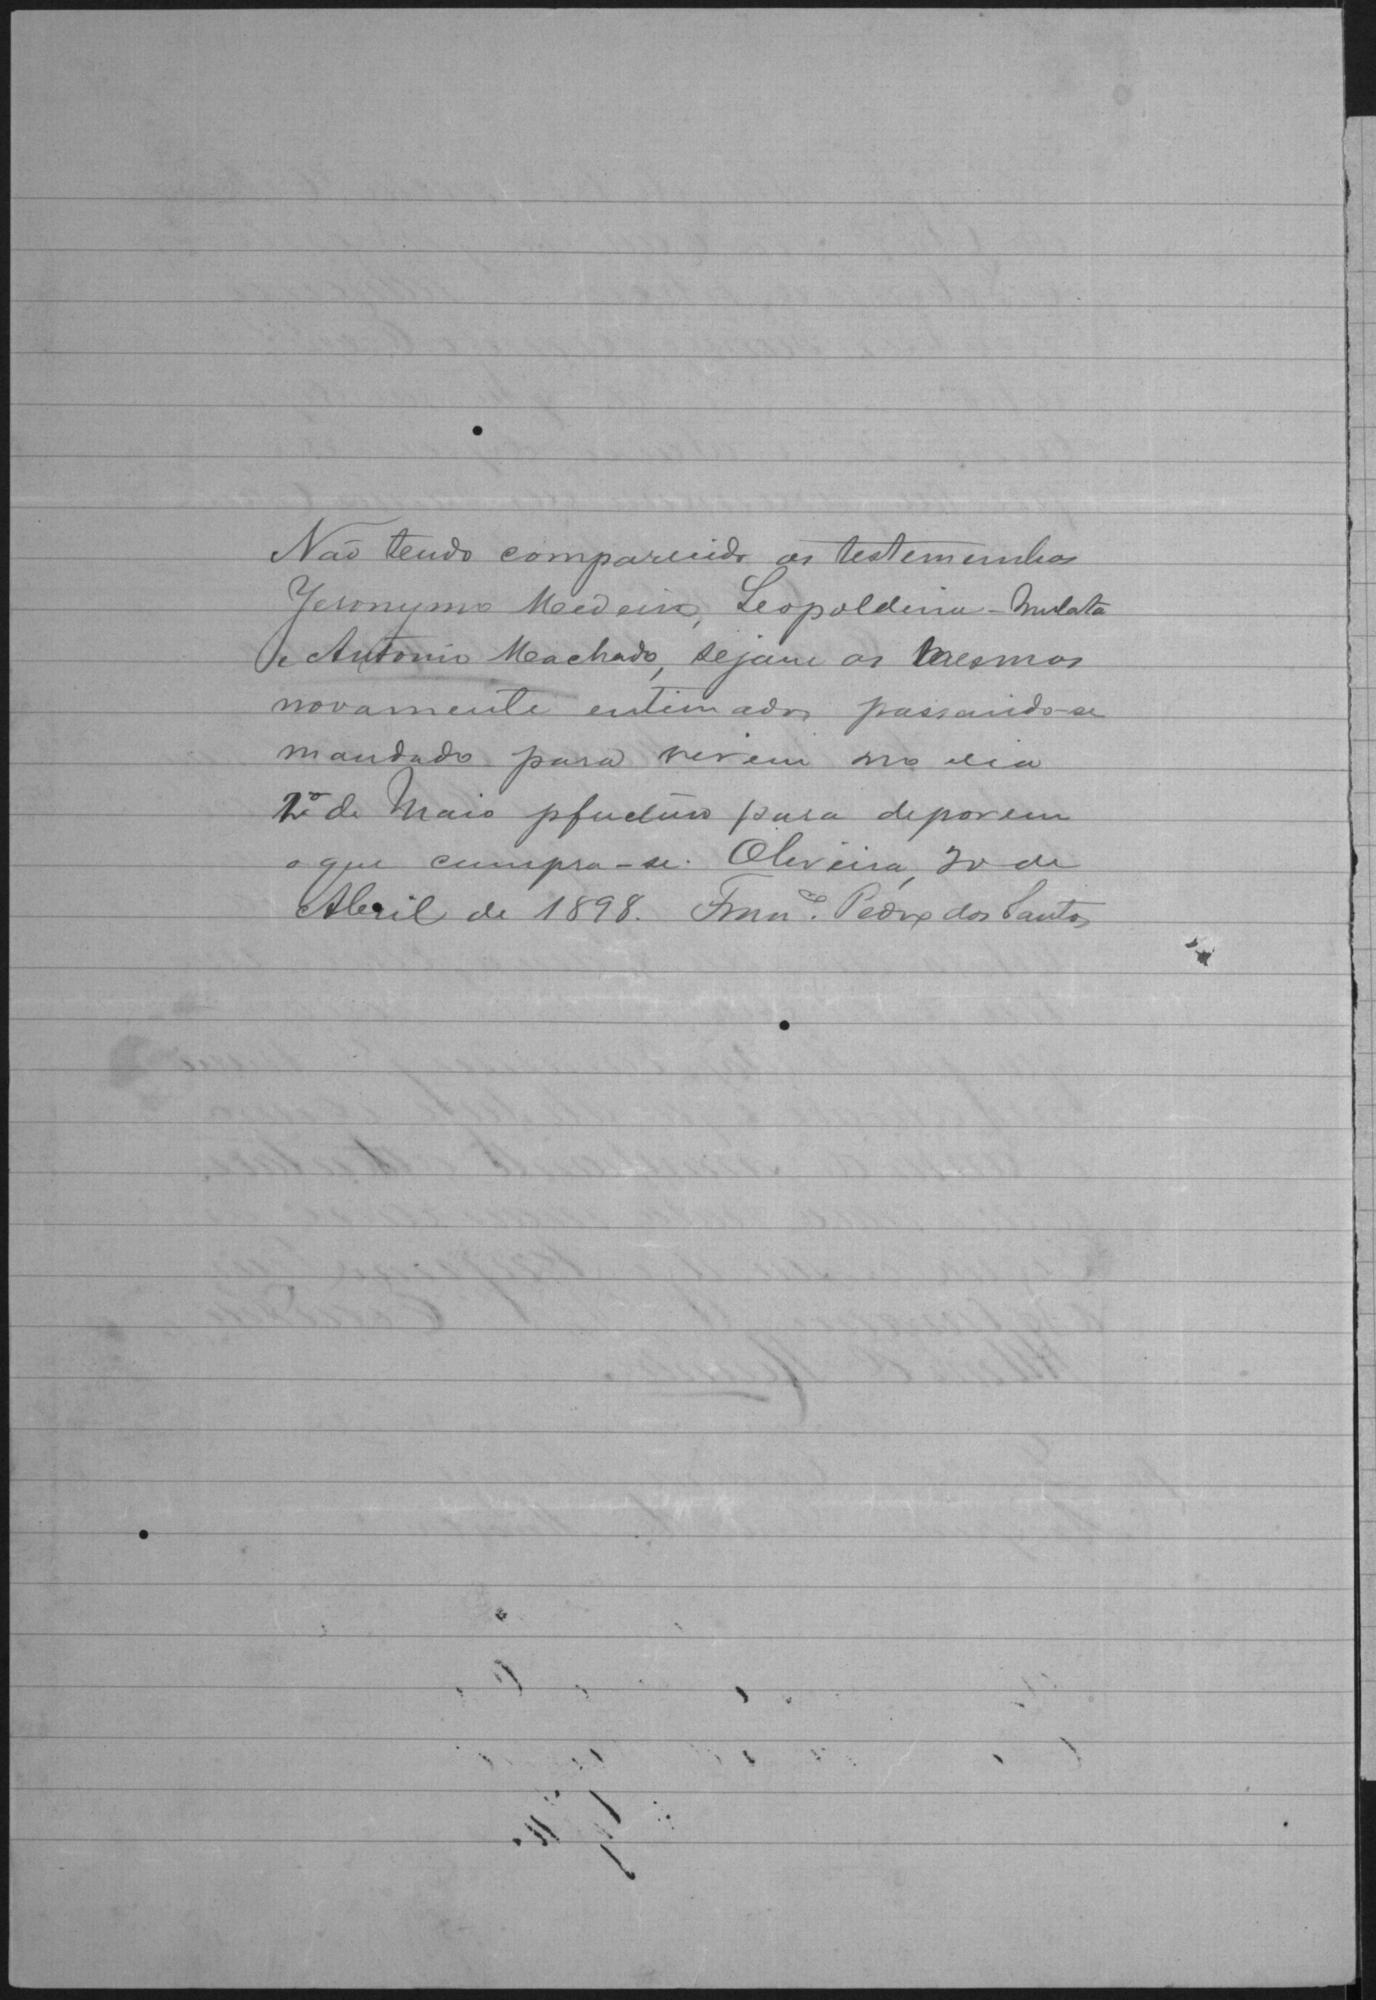 Não tendo comparecido as testemunhas
Jeronymo Medeiros, Leopoldina-Mulata
e Antonio Machado, sejam os mesmos
novamente entimados passando-se
mandado para virem no dia
2 de Maio pfucturo para deporem
o que cumpra-se. Oliveira, 30 de
Abril de 1898. Franco. Pedro dos Santos